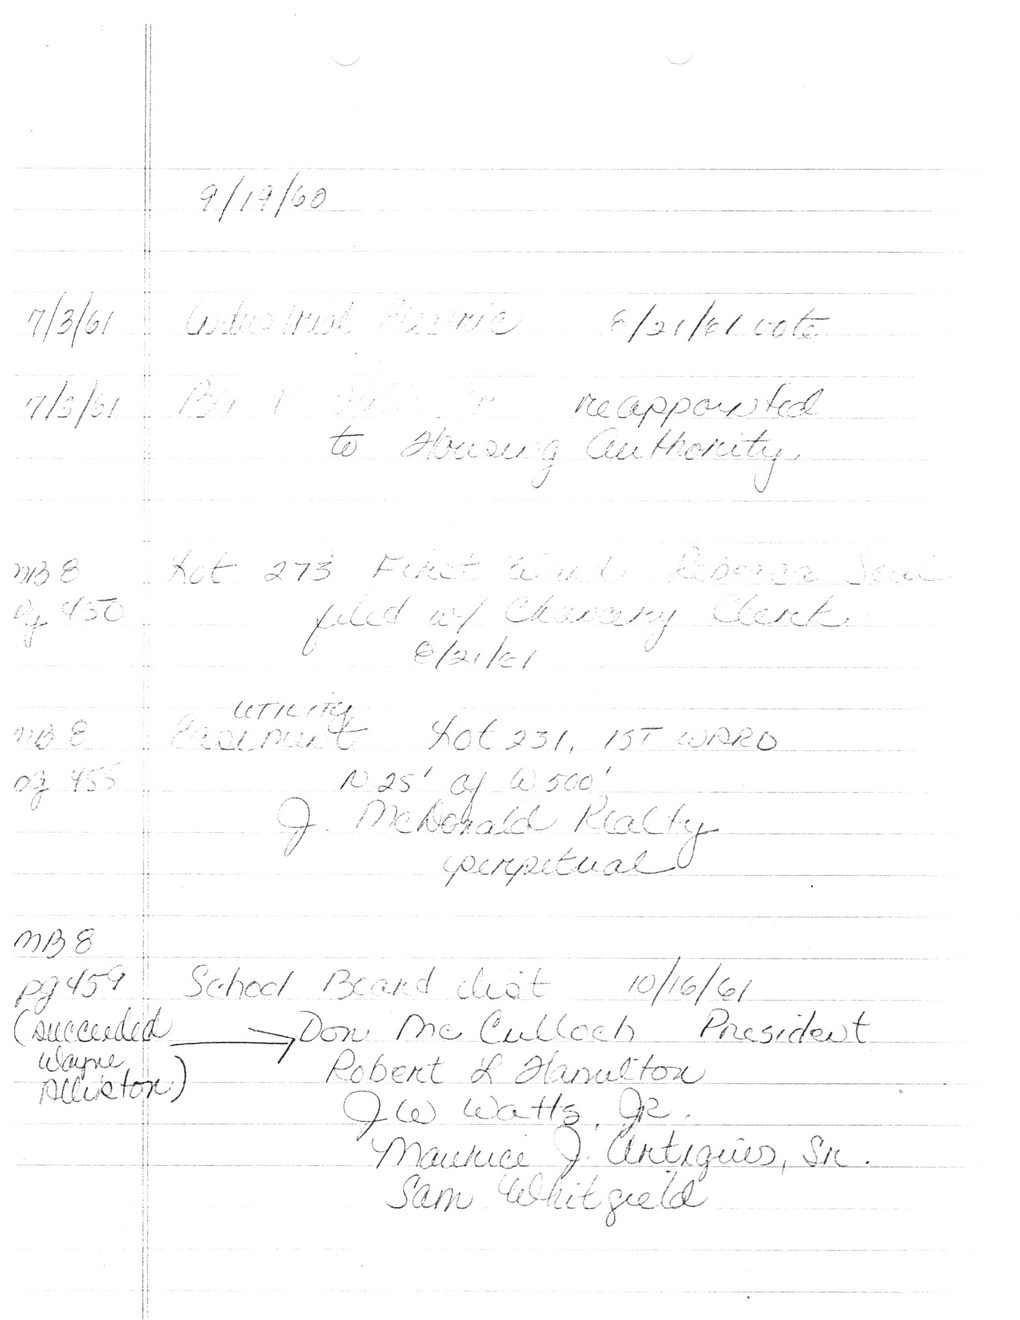 9/19/60
7/3/61 Industrial Electric 8/21/61 vote
7/3/61 reappointed
to Housing Authority.
MB 8 Lot 273 First Ward Rebecca Seal
Pg 450 filed w/ Chancery Clerk.
8/21/61
UTILITY
MB 8 Easement Lot 231, 1ST WARD
pg 455 N 25' of W 500'
J. McDonald Realty
perpetual
MB 8
pg 459 School Board list 10/16/61
(succeeded Don McCulloch President
Wayne Robert L Hamilton
Alliston) J W Watts, Jr.
Maurice J. Artigues, Sr.
Sam Whitfield